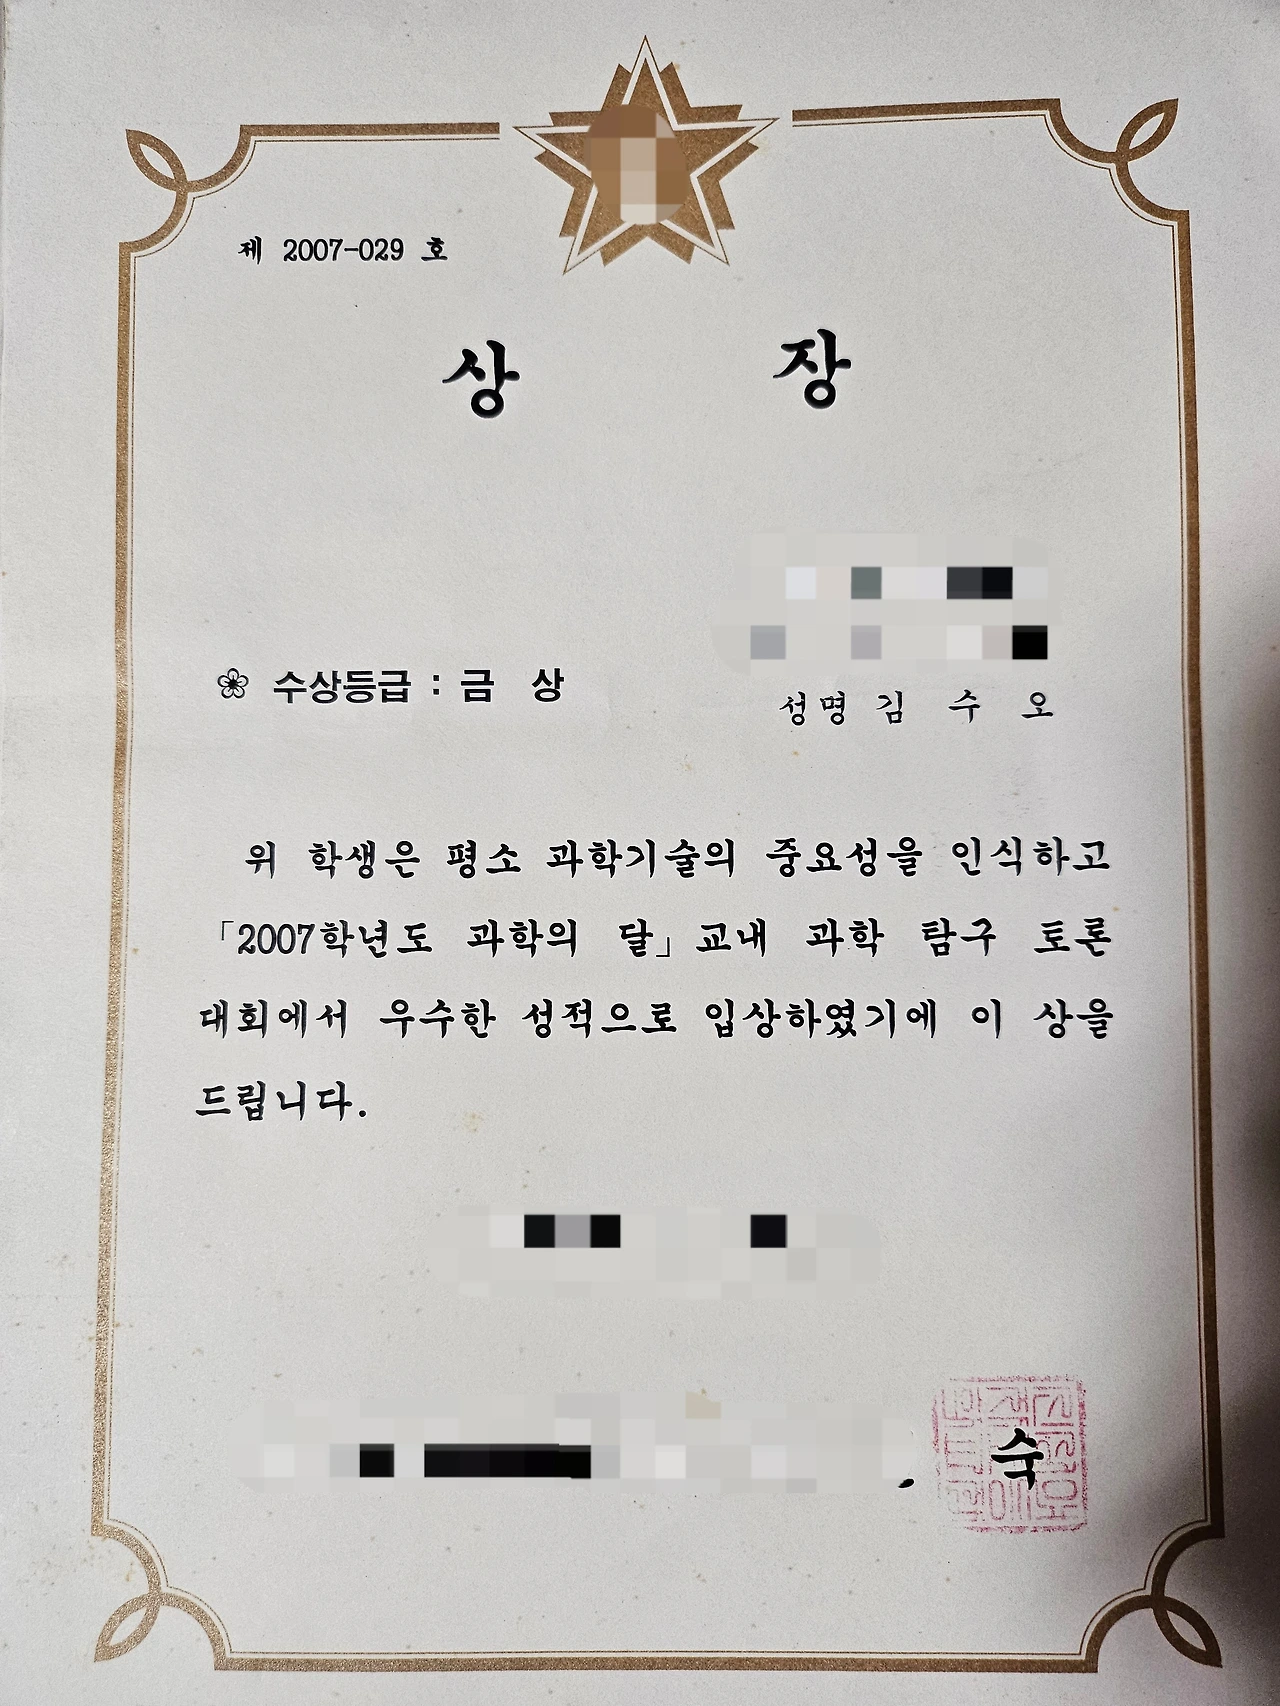 제 2007-029 호
상 장
❀ 수상등급 : 금 상
성명 김 수 오
위 학생은 평소 과학기술의 중요성을 인식하고
「2007학년도 과학의 달」교내 과학 탐구 토론
대회에서 우수한 성적으로 입상하였기에 이 상을
드립니다.
숙